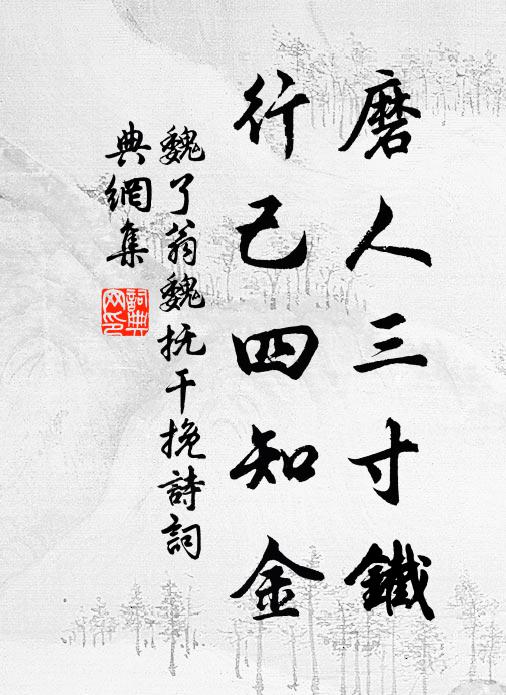 磨人三寸鐵
行己四知金
魏了翁魏抚干挽詩詞
典網集
詞典
网印